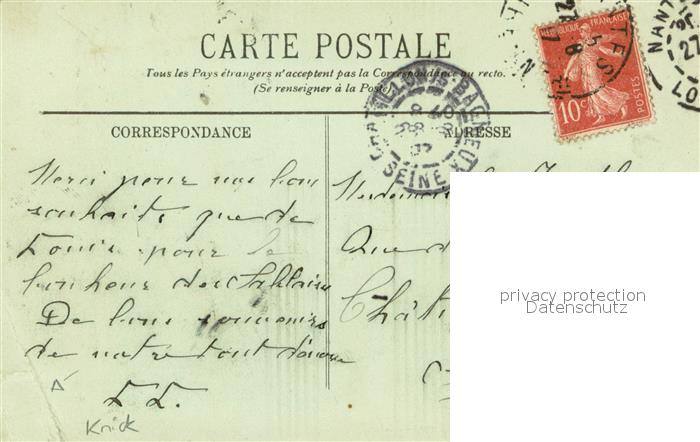 CARTE POSTALE
Tous les Pays étrangers n'acceptent pas la Correspondance au recto.
(Se renseigner à la Poste)
CORRESPONDANCE
ADRESSE
RÉPUBLIQUE FRANÇAISE
10c
POSTES
NANT
27
CHATILLON-S-BAGNEUX
SEINE
Merci pour vos bons
souhaits que de
Louis pour le
bonheur
De bons souvenirs
de votre tout
L L.
Knick
Rue d
Châti
privacy protection
Datenschutz